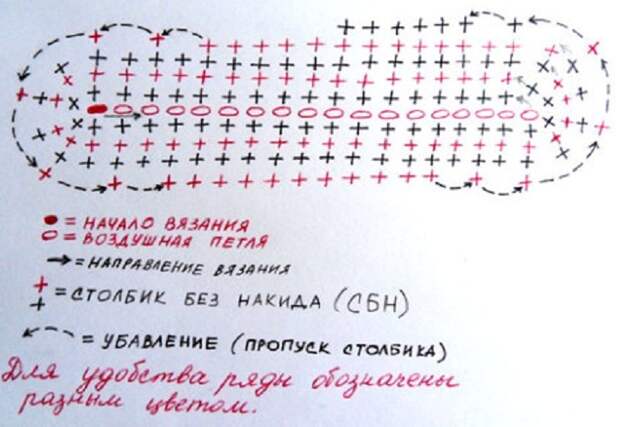 = НАЧАЛО ВЯЗАНИЯ
= ВОЗДУШНАЯ ПЕТЛЯ
= НАПРАВЛЕНИЕ ВЯЗАНИЯ
= СТОЛБИК БЕЗ НАКИДА (СБН)
= УБАВЛЕНИЕ (ПРОПУСК СТОЛБИКА)
Для удобства ряды обозначены
разным цветом.